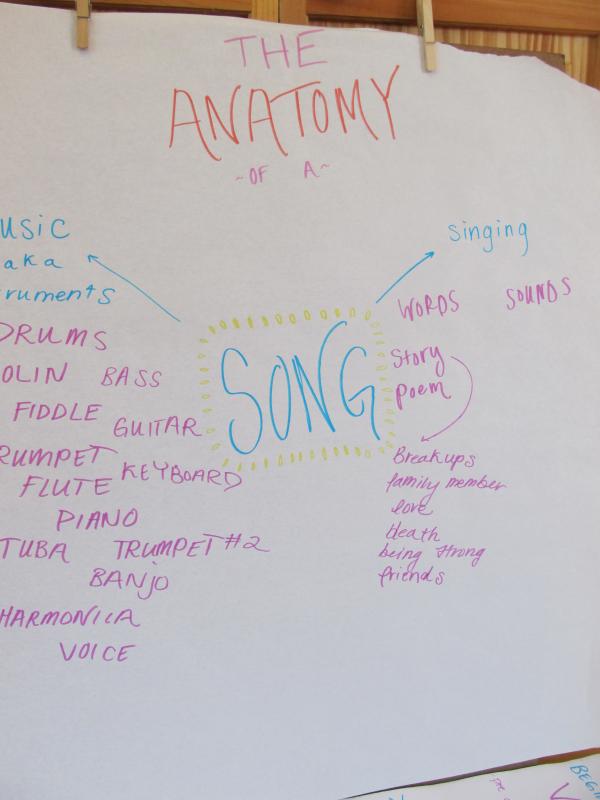 THE
ANATOMY
~OF A~
usic
aka
ruments
DRUMS
OLIN BASS
FIDDLE
GUITAR
RUMPET
KEYBOARD
FLUTE
PIANO
TUBA TRUMPET #2
BANJO
HARMONICA
VOICE
SONG
singing
WORDS SOUNDS
Story
poem
Breakups
family member
love
death
being strong
friends